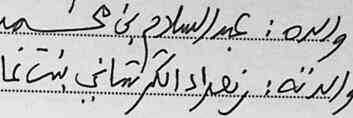 والده: عبد السلام بن محمد
والدته: زهراء الكرتساني بنت